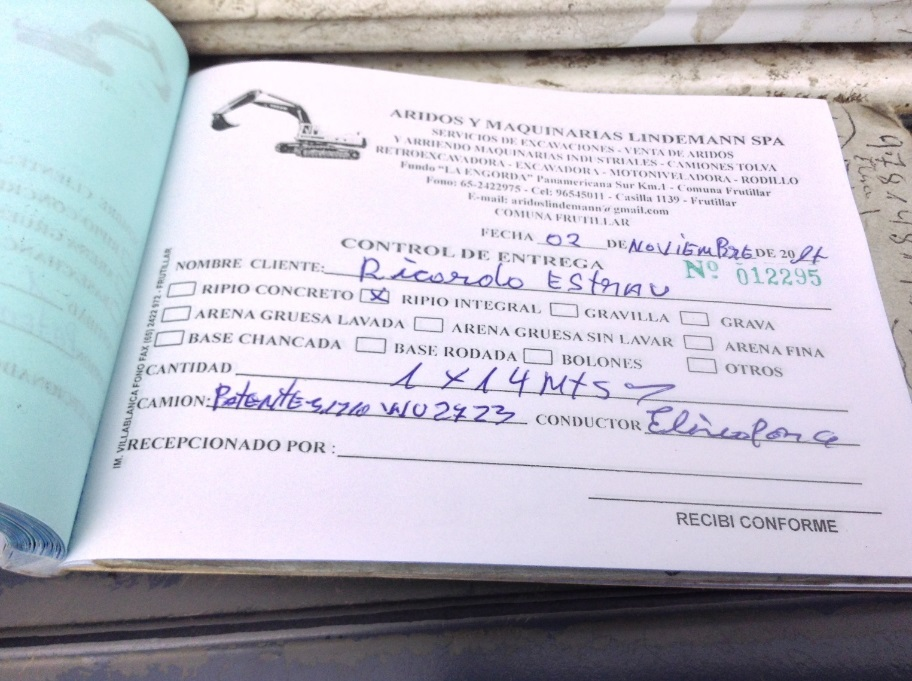 ARIDOS Y MAQUINARIAS LINDEMANN SPA
SERVICIOS DE EXCAVACIONES - VENTA DE ARIDOS
Y ARRIENDO MAQUINARIAS INDUSTRIALES - CAMIONES TOLVA
RETROEXCAVADORA - EXCAVADORA - MOTONIVELADORA - RODILLO
Fundo "LA ENGORDA" Panamericana Sur Km.1 - Comuna Frutillar
Fono: 65-2422975 - Cel: 96545011 - Casilla 1139 - Frutillar
E-mail: aridoslindemann@gmail.com
COMUNA FRUTILLAR
FECHA 02 DE NOVIEMBRE DE 20
CONTROL DE ENTREGA Nº 012295
NOMBRE CLIENTE: Ricardo
RIPIO CONCRETO X RIPIO INTEGRAL GRAVILLA GRAVA
ARENA GRUESA LAVADA ARENA GRUESA SIN LAVAR ARENA FINA
BASE CHANCADA BASE RODADA BOLONES OTROS
CANTIDAD 1 X 14 Mts
CAMION: WU 2723 CONDUCTOR
RECEPCIONADO POR :
RECIBI CONFORME
IM. VILLABLANCA FONO FAX (65) 2422 972 - FRUTILLAR